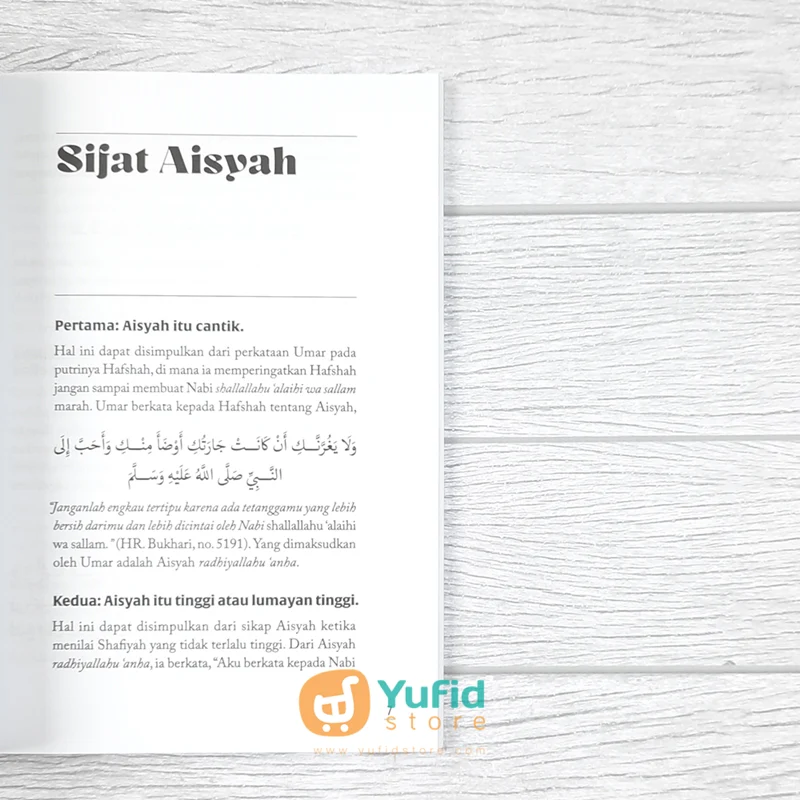 Sifat Aisyah
Pertama: Aisyah itu cantik.
Hal ini dapat disimpulkan dari perkataan Umar pada
putrinya Hafshah, di mana ia memperingatkan Hafshah
jangan sampai membuat Nabi shallallahu ‘alaihi wa sallam
marah. Umar berkata kepada Hafshah tentang Aisyah,
وَلَا يَغُرَّنَّـــكِ أَنْ كَانَـــتْ جَارَتُكِ أَوْضَأَ مِنْـــكِ وَأَحَبَّ إِلَى
النَّبِـــيِّ صَلَّى اللَّهُ عَلَيْهِ وَسَـــلَّمَ
“Janganlah engkau tertipu karena ada tetanggamu yang lebih
bersih darimu dan lebih dicintai oleh Nabi shallallahu ‘alaihi
wa sallam.” (HR. Bukhari, no. 5191). Yang dimaksudkan
oleh Umar adalah Aisyah radhiyallahu ‘anha.
Kedua: Aisyah itu tinggi atau lumayan tinggi.
Hal ini dapat disimpulkan dari sikap Aisyah ketika
menilai Shafiyah yang tidak terlalu tinggi. Dari Aisyah
radhiyallahu ‘anha, ia berkata, “Aku berkata kepada Nabi
7
Yufid
store
www.yufidstore.com